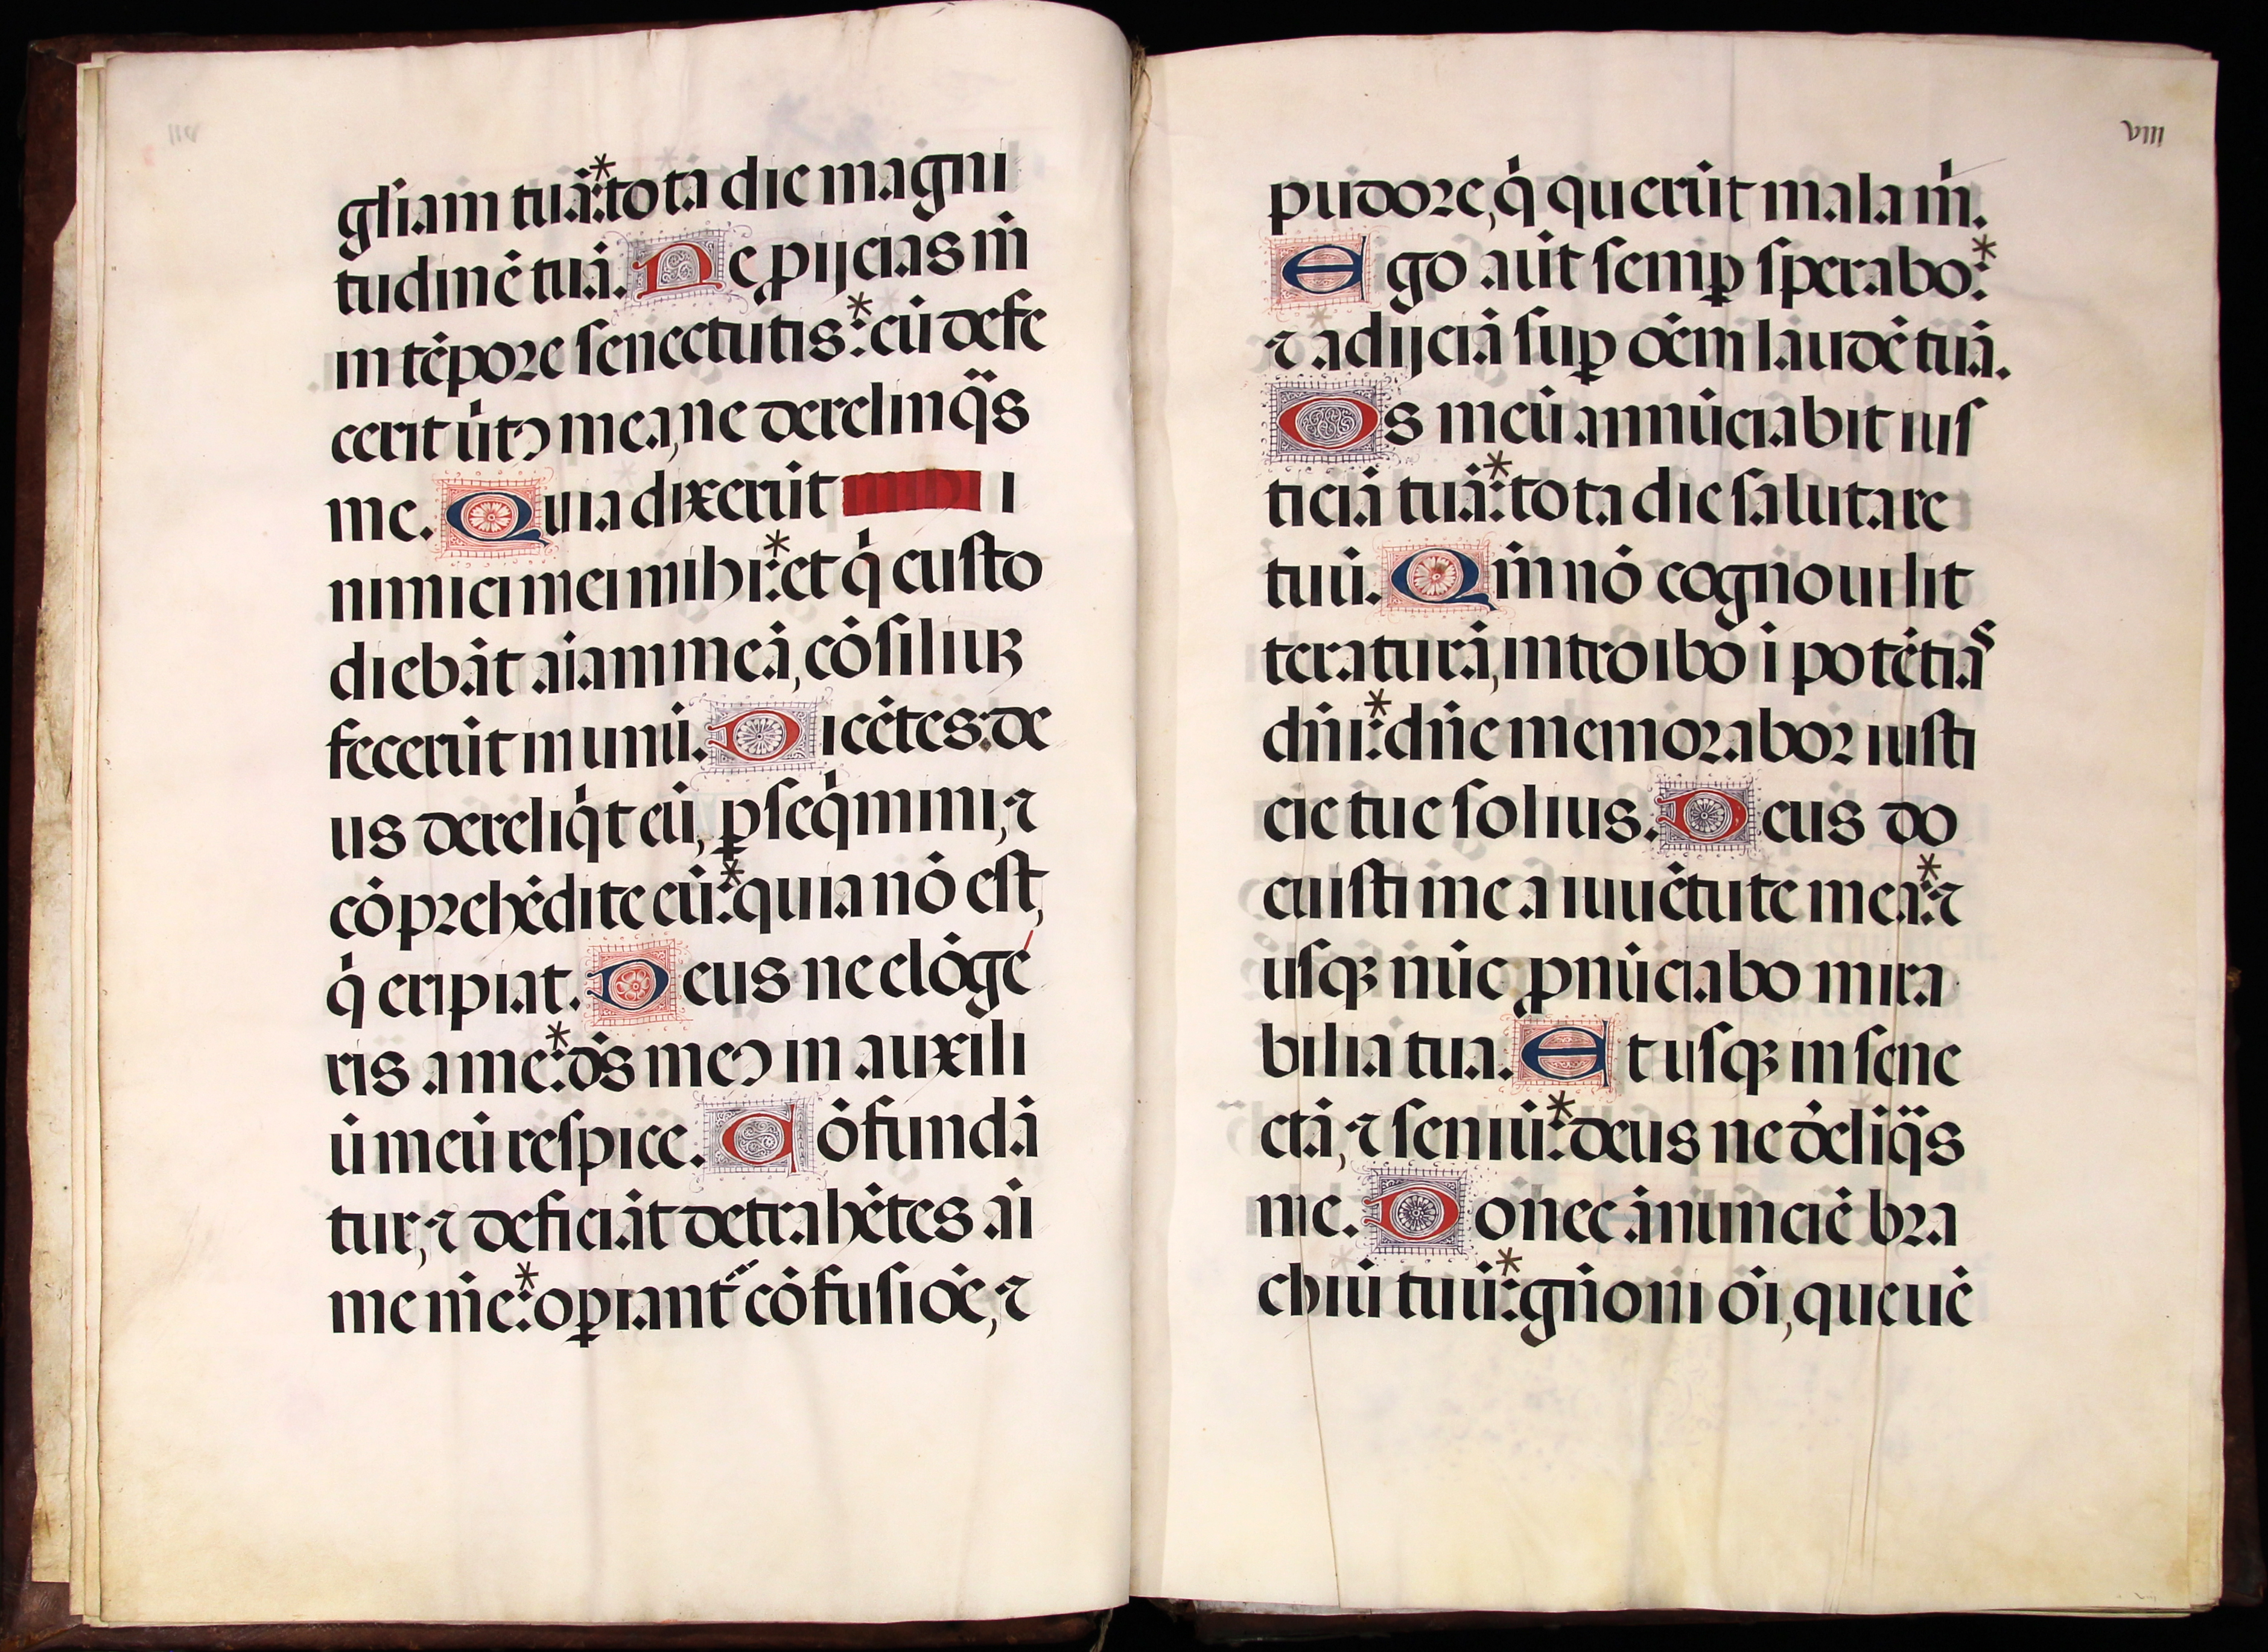 gl̃iam tuā:*tota die magni
tudinē tuā. Ne pijcias m̄
in tēpore senectutis:*cū defe
cerit ũtꝯ mea, ne derelinq̃s
me. Quia dixerūt i
nimici mei mihi:*et q̇ custo
diebāt aīam meā, cōsiliuꝫ
fecerūt in unū. Dicētes: de
us dereliq̇t eū, ꝑseq̇mini, ⁊
cōprehēdite eū:*quia nō est,
q̇ eripiat. Deus ne elōge
ris a me:*ds̄ meꝯ in auxili
ū meū respice. Cōfundā
tur, ⁊ deficiāt detrahētes aī
me m̄e:*oꝑiant̃ cōfusiōe, ⁊
VIII
pudore, q̇ querūt mala m̄.
Ego aūt semꝑ sperabo:*
⁊ adijciā suꝑ oēm laudē tuā.
Os meū annūciabit ius
ticiā tuā:*tota die salutare
tuū. Qm̄ nō cognoui lit
teraturā, introibo ī potētiaˢ
dn̄i:*dn̄e memorabor iusti
cie tue solius. Deus do
cuisti me a iuuētute mea:*⁊
usqꝫ nūc ꝓnūciabo mira
bilia tua. Et usqꝫ in sene
ctā, ⁊ seniū:*deus ne dēliq̃s
me. Donec ānunciē bra
chiū tuū:*gn̄oni oī, que uē